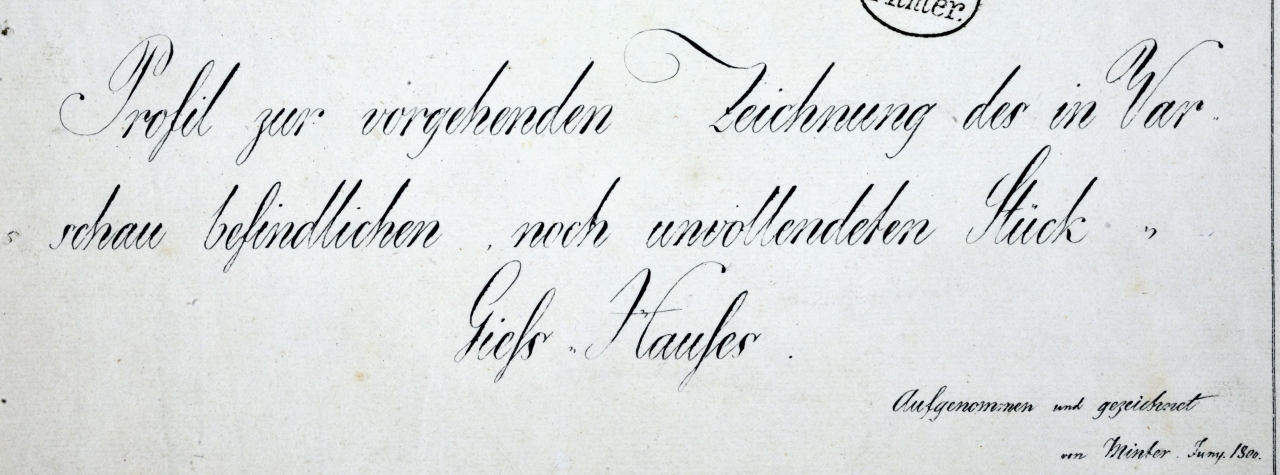 Minter.
Profil zur vorgehenden Zeichnung des in War-
schau befindlichen, noch unvollendeten Stück „
Giess „ Hauses.
Aufgenommen und gezeichnet
von Minter. Juny. 1800.